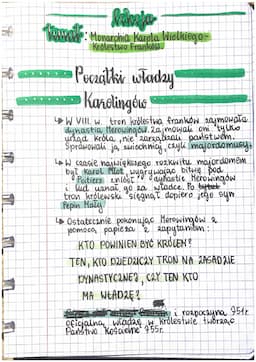 lekcja
temat: Monarchia Karola Wielkiego -
Królestwo Franków
Początki władzy
Karolingów
↳ W VIII w. tron królestwa franków zajmowała
dynastia Merowingów. Zajmowali oni tylko
urząd króla, nie zarządzali państwem.
Sprawowali ją świeccy, czyli majordomusi.
↳ W czasie największego rozkwitu majordomem
był Karol Młot, wygrywając bitwę pod
Poitiers dynastię Merowingów
i lud uznał go za władcę. Po
tron królewski sięgnął dopiero jego syn
Pepin Mały
↳ Ostatecznie pokonując Merowingów z
pomocą papieża z zapytaniem:
KTO POWINIEN BYĆ KRÓLEM?
TEN, KTO DZIEDZICZY TRON NA ZASADZIE
DYNASTYCZNEJ, CZY TEN KTO
MA WŁADZĘ?
i rozpoczyna 751r.
oficjalną władzę w królestwie tworząc
Państwo Kościelne 755r.